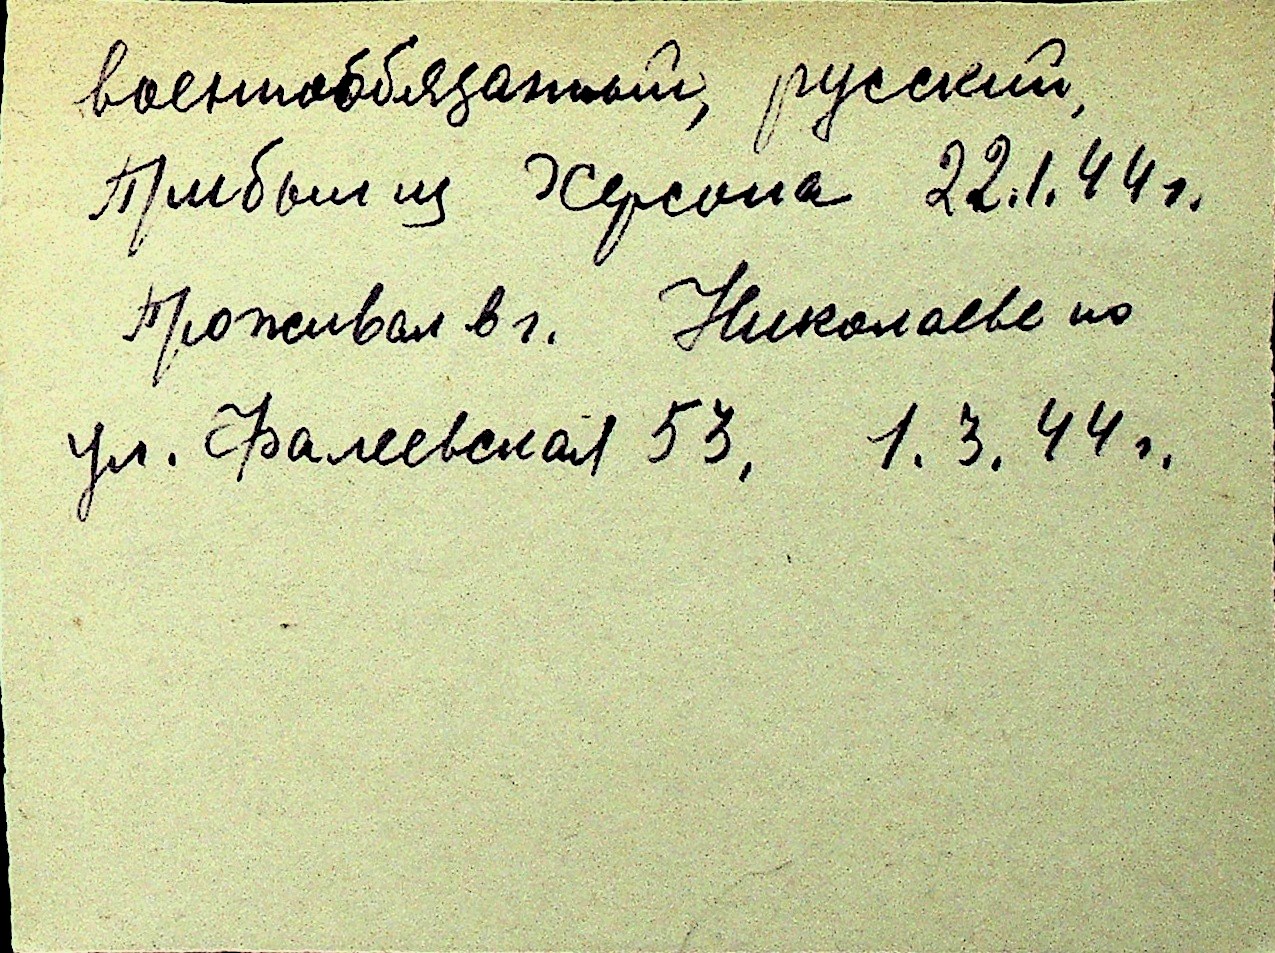 военнообязанный, русский,
Прибыл из Херсона 22.1.44 г.
Проживал в г. Николаеве по
ул. Фалеевская 53, 1.3.44 г.